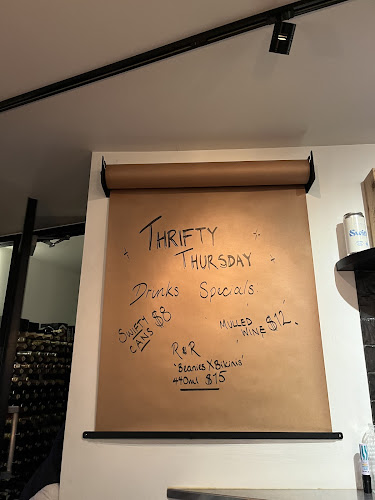 THRIFTY
THURSDAY
Drinks Specials
SWIFTY $8
CANS
MULLED $12.
WINE
R & R
'Beanies X Bikinis'
440ml $15